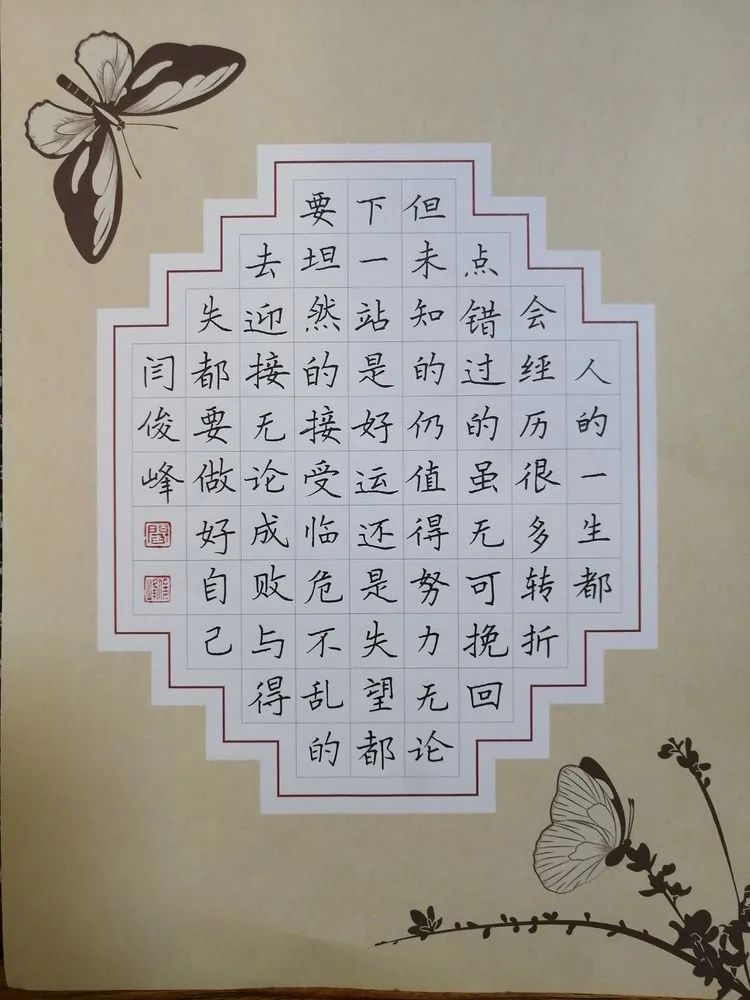 人的一生都
会经历很多转折
点错过的虽无可挽回
但未知的仍值得努力无论
下一站是好运还是失望都
要坦然的接受临危不乱的
去迎接无论成败与得
失都要做好自己
闫俊峰